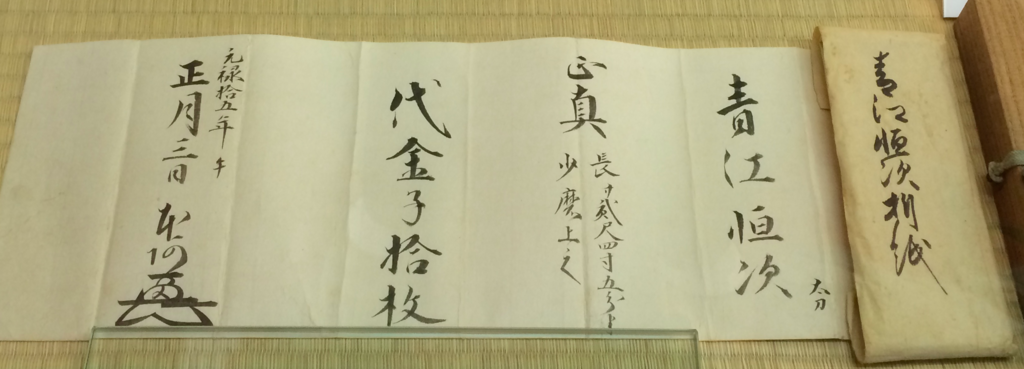 青江恒次折紙
青江恒次
太刀
正真
長サ貳尺四寸五分半
少磨上之
代金子拾枚
元禄拾五年午
正月三日